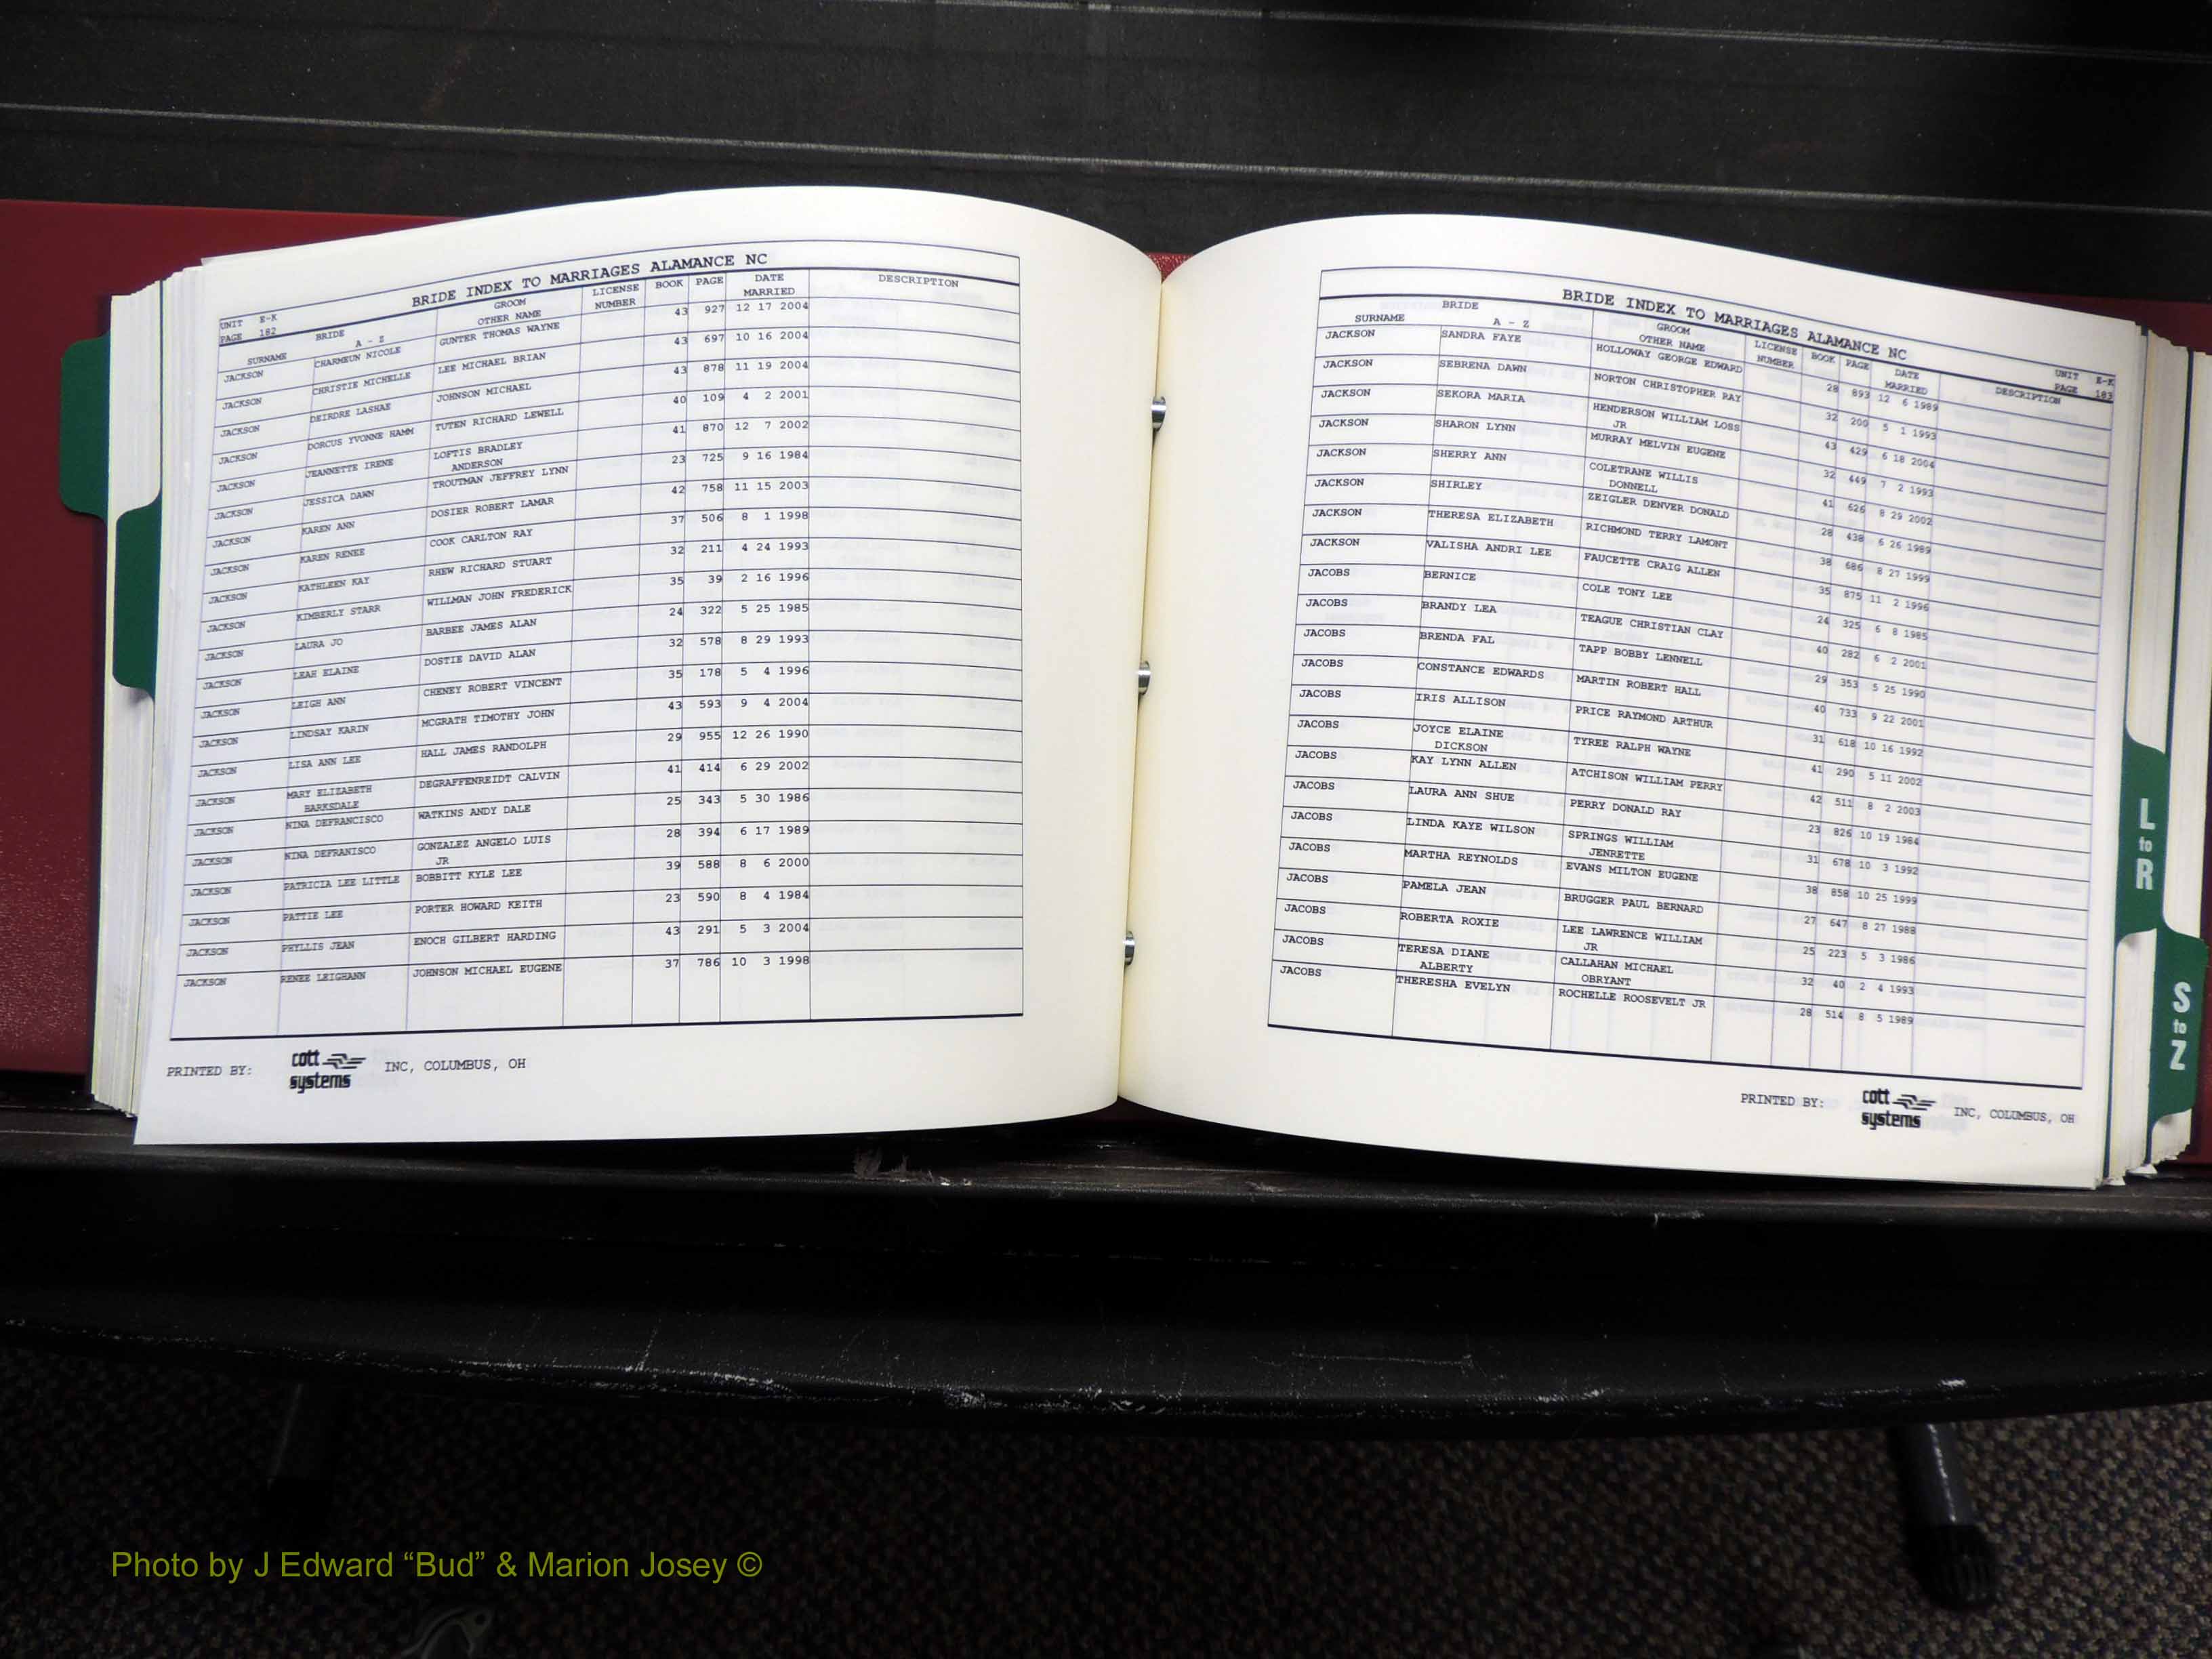 BRIDE INDEX TO MARRIAGES ALAMANCE NC
UNIT E-K
PAGE 182
SURNAME BRIDE A - Z GROOM OTHER NAME LICENSE NUMBER BOOK PAGE DATE MARRIED DESCRIPTION
JACKSON CHARMEUN NICOLE GUNTER THOMAS WAYNE 43 927 12 17 2004
JACKSON CHRISTIE MICHELLE LEE MICHAEL BRIAN 43 697 10 16 2004
JACKSON DEIRDRE LASHAE JOHNSON MICHAEL 43 878 11 19 2004
JACKSON DORCUS YVONNE HAMM TUTEN RICHARD LEWELL 40 109 4 2 2001
JACKSON JEANNETTE IRENE LOFTIS BRADLEY 41 870 12 7 2002
ANDERSON
JACKSON JESSICA DAWN TROUTMAN JEFFREY LYNN 23 725 9 16 1984
JACKSON KAREN ANN DOSIER ROBERT LAMAR 42 758 11 15 2003
JACKSON KAREN RENEE COOK CARLTON RAY 37 506 8 1 1998
JACKSON KATHLEEN KAY RHEW RICHARD STUART 32 211 4 24 1993
JACKSON KIMBERLY STARR WILLMAN JOHN FREDERICK 35 39 2 16 1996
JACKSON LAURA JO BARBEE JAMES ALAN 24 322 5 25 1985
JACKSON LEAH ELAINE DOSTIE DAVID ALAN 32 578 8 29 1993
JACKSON LEIGH ANN CHENEY ROBERT VINCENT 35 178 5 4 1996
JACKSON LINDSAY KARIN MCGRATH TIMOTHY JOHN 43 593 9 4 2004
JACKSON LISA ANN LEE HALL JAMES RANDOLPH 29 955 12 26 1990
JACKSON MARY ELIZABETH DEGRAFFENREIDT CALVIN 41 414 6 29 2002
BARKSDALE
JACKSON NINA DEFRANCISCO WATKINS ANDY DALE 25 343 5 30 1986
JACKSON NINA DEFRANISCO GONZALEZ ANGELO LUIS 28 394 6 17 1989
JR
JACKSON PATRICIA LEE LITTLE BOBBITT KYLE LEE 39 588 8 6 2000
JACKSON PATTIE LEE PORTER HOWARD KEITH 23 590 8 4 1984
JACKSON PHYLLIS JEAN ENOCH GILBERT HARDING 43 291 5 3 2004
JACKSON RENEE LEIGHANN JOHNSON MICHAEL EUGENE 37 786 10 3 1998
PRINTED BY: cott systems INC, COLUMBUS, OH
BRIDE INDEX TO MARRIAGES ALAMANCE NC
UNIT E-K
PAGE 183
SURNAME BRIDE A - Z GROOM OTHER NAME LICENSE NUMBER BOOK PAGE DATE MARRIED DESCRIPTION
JACKSON SANDRA FAYE HOLLOWAY GEORGE EDWARD 28 893 12 6 1989
JACKSON SEBRENA DAWN NORTON CHRISTOPHER RAY 32 200 5 1 1993
JACKSON SEKORA MARIA HENDERSON WILLIAM LOSS 43 429 6 18 2004
JR
JACKSON SHARON LYNN MURRAY MELVIN EUGENE 32 449 7 2 1993
JACKSON SHERRY ANN COLETRANE WILLIS 41 626 8 29 2002
DONNELL
JACKSON SHIRLEY ZEIGLER DENVER DONALD 28 438 6 26 1989
JACKSON THERESA ELIZABETH RICHMOND TERRY LAMONT 38 686 8 27 1999
JACKSON VALISHA ANDRI LEE FAUCETTE CRAIG ALLEN 35 875 11 2 1996
JACOBS BERNICE COLE TONY LEE 24 325 6 8 1985
JACOBS BRANDY LEA TEAGUE CHRISTIAN CLAY 40 282 6 2 2001
JACOBS BRENDA FAL TAPP BOBBY LENNELL 29 353 5 25 1990
JACOBS CONSTANCE EDWARDS MARTIN ROBERT HALL 40 733 9 22 2001
JACOBS IRIS ALLISON PRICE RAYMOND ARTHUR 31 618 10 16 1992
JACOBS JOYCE ELAINE TYREE RALPH WAYNE 41 290 5 11 2002
DICKSON
JACOBS KAY LYNN ALLEN ATCHISON WILLIAM PERRY 42 511 8 2 2003
JACOBS LAURA ANN SHUE PERRY DONALD RAY 23 826 10 19 1984
JACOBS LINDA KAYE WILSON SPRINGS WILLIAM 31 678 10 3 1992
JENRETTE
JACOBS MARTHA REYNOLDS EVANS MILTON EUGENE 38 858 10 25 1999
JACOBS PAMELA JEAN BRUGGER PAUL BERNARD 27 647 8 27 1988
JACOBS ROBERTA ROXIE LEE LAWRENCE WILLIAM 25 223 5 3 1986
JR
JACOBS TERESA DIANE CALLAHAN MICHAEL 32 40 2 4 1993
ALBERTY OBRYANT
JACOBS THERESHA EVELYN ROCHELLE ROOSEVELT JR 28 514 8 5 1989
PRINTED BY: cott systems INC, COLUMBUS, OH
L to R
S to Z
Photo by J Edward “Bud” & Marion Josey ©